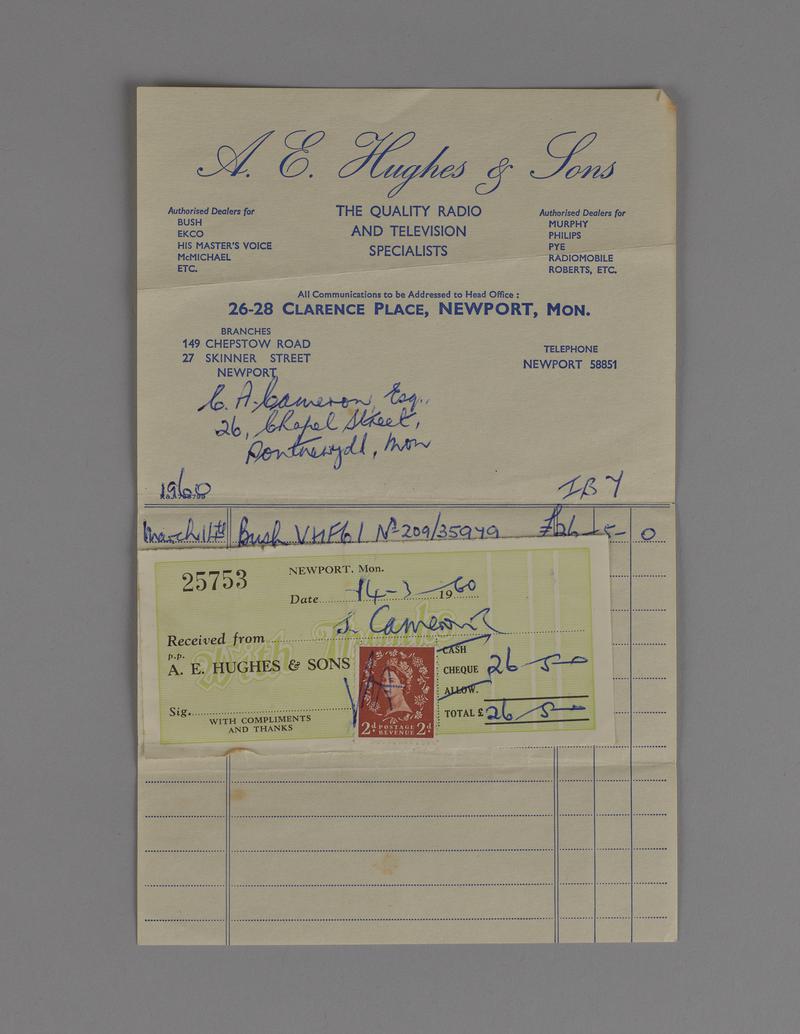 A. E. Hughes & Sons
THE QUALITY RADIO
AND TELEVISION
SPECIALISTS
Authorised Dealers for
BUSH
EKCO
HIS MASTER'S VOICE
McMICHAEL
ETC.
Authorised Dealers for
MURPHY
PHILIPS
PYE
RADIOMOBILE
ROBERTS, ETC.
All Communications to be Addressed to Head Office :
26-28 CLARENCE PLACE, NEWPORT, MON.
BRANCHES
149 CHEPSTOW ROAD
27 SKINNER STREET
NEWPORT
TELEPHONE
NEWPORT 58851
C. A. Cameron, Esq.,
26, Chapel Street,
Pontnewydd, Mon
1960
March 11th Bush VHF61 No 209/35979 £26-5-0
25753
NEWPORT, Mon.
Date 14-3-1960
Received from Cameron
p.p.
A. E. HUGHES & SONS
With Thanks
CASH
CHEQUE 26 5-0
ALLOW.
TOTAL £ 26 5-0
Sig.
WITH COMPLIMENTS
AND THANKS
2d POSTAGE REVENUE 2d